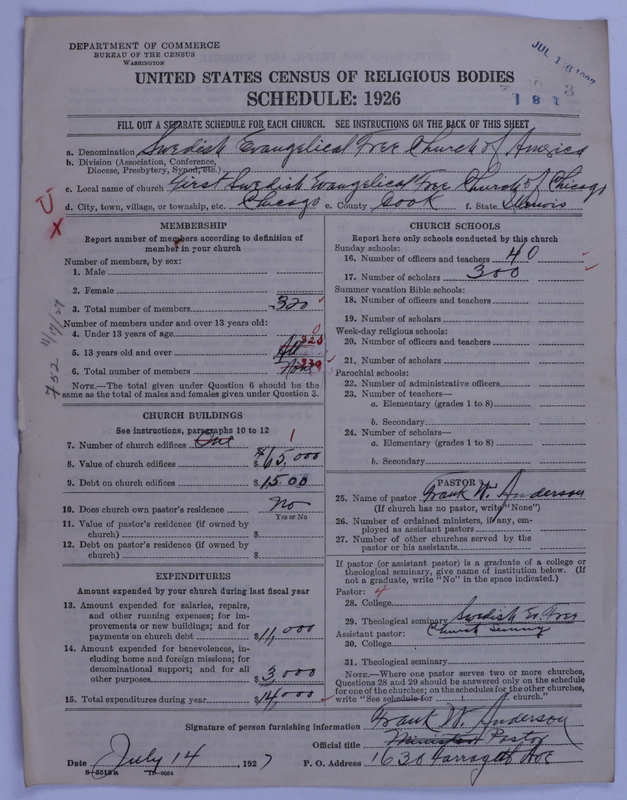 DEPARTMENT OF COMMERCE
BUREAU OF THE CENSUS
WASHINGTON
UNITED STATES CENSUS OF RELIGIOUS BODIES
SCHEDULE: 1926
FILL OUT A SEPARATE SCHEDULE FOR EACH CHURCH. SEE INSTRUCTIONS ON THE BACK OF THIS SHEET
a. Denomination Swedish Evangelical Free Church of America
b. Division (Association, Conference, Diocese, Presbytery, Synod, etc.)
c. Local name of church First Swedish Evangelical Free Church of Chicago
d. City, town, village, or township, etc. Chicago e. County Cook f. State Illinois
MEMBERSHIP
Report number of members according to definition of
member in your church
Number of members, by sex:
1. Male
2. Female
3. Total number of members 320
Number of members under and over 13 years old:
4. Under 13 years of age 0
5. 13 years old and over All 320
6. Total number of members
NOTE.—The total given under Question 6 should be the
same as the total of males and females given under Question 3.
CHURCH BUILDINGS
See instructions, paragraphs 10 to 12
7. Number of church edifices One 1
8. Value of church edifices $ 65,000
9. Debt on church edifices $ 1500
10. Does church own pastor's residence No
Yes or No
11. Value of pastor's residence (if owned by
church) $
12. Debt on pastor's residence (if owned by
church) $
EXPENDITURES
Amount expended by your church during last fiscal year
13. Amount expended for salaries, repairs,
and other running expenses; for im-
provements or new buildings; and for
payments on church debt $ 11,000
14. Amount expended for benevolences, in-
cluding home and foreign missions; for
denominational support; and for all
other purposes $ 3,000
15. Total expenditures during year $ 14,000
CHURCH SCHOOLS
Report here only schools conducted by this church
Sunday schools:
16. Number of officers and teachers 40
17. Number of scholars 300
Summer vacation Bible schools:
18. Number of officers and teachers
19. Number of scholars
Week-day religious schools:
20. Number of officers and teachers
21. Number of scholars
Parochial schools:
22. Number of administrative officers
23. Number of teachers—
a. Elementary (grades 1 to 8)
b. Secondary
24. Number of scholars—
a. Elementary (grades 1 to 8)
b. Secondary
PASTOR
25. Name of pastor Frank W. Anderson
(If church has no pastor, write "None")
26. Number of ordained ministers, if any, em-
ployed as assistant pastors
27. Number of other churches served by the
pastor or his assistants
If pastor (or assistant pastor) is a graduate of a college or
theological seminary, give name of institution below. (If
not a graduate, write "No" in the space indicated.)
Pastor: 4
28. College
29. Theological seminary Swedish Ev. Free
Church
Assistant pastor:
30. College
31. Theological seminary
NOTE.—Where one pastor serves two or more churches,
Questions 28 and 29 should be answered only on the schedule
for one of the churches; on the schedules for the other churches,
write "See schedule for church."
Signature of person furnishing information Frank W. Anderson
Official title Minister Pastor
Date July 14, 1927 P. O. Address 1630 Farragut Ave
8-5518a